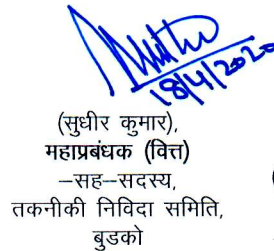 18/4/2020
(सुधीर कुमार),
महाप्रबंधक (वित्त)
–सह–सदस्य,
तकनीकी निविदा समिति,
बुडको